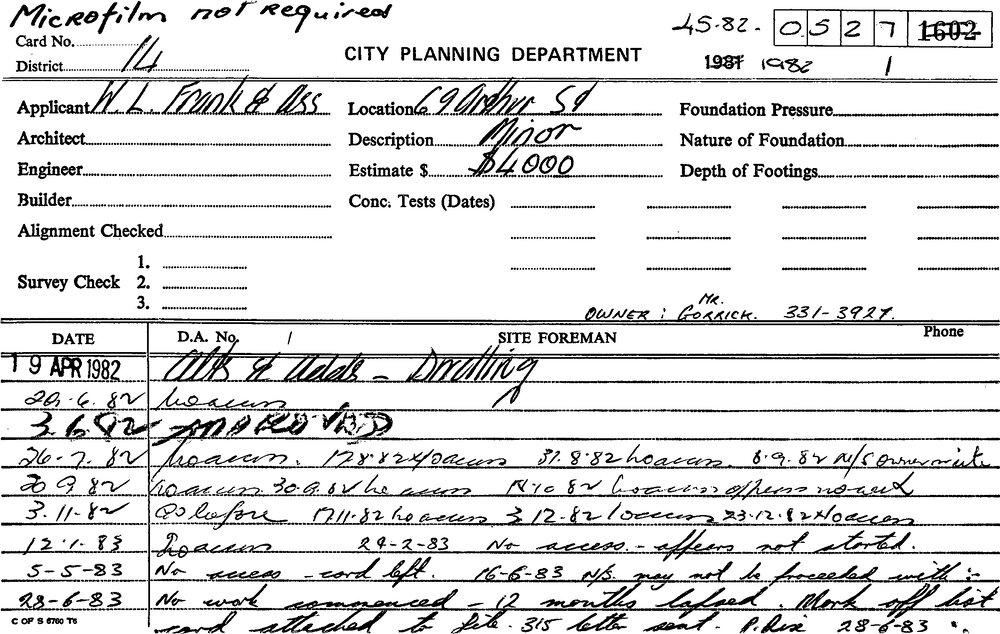 Microfilm not required
45-82. 0 5 2 7 1602
Card No.
District 14
CITY PLANNING DEPARTMENT
1981 1982 1
Applicant W. L. Frank & Ass Location 69 Arthur St Foundation Pressure
Architect Description Minor Nature of Foundation
Engineer Estimate $ $4000 Depth of Footings
Builder Conc. Tests (Dates)
Alignment Checked
1.
Survey Check 2.
3.
OWNER: MR. GORRICK. 331-3927.
DATE D.A. No. / SITE FOREMAN Phone
19 APR 1982 Alts & Adds - Dwelling
29.6.82 No access
3.6.82 APPROVED
26-7.82 No access. 17.8.82 No access 31.8.82 No access. 8.9.82 N/S owner
20 9.82 No access 30.9.82 No access 19.10.82 No access appears no work
3.11-82 As before 17.11.82 No access 3.12.82 No access 23.12.82 No access
12.1.83 No access 24-2-83 No access - appears not started.
5-5-83 No access - card left. 16-6-83 N/S. may not be proceeded with :-
28-6-83 No work commenced - 12 months lapsed. Mark off list
C OF S 6760 T6
card attached to file. 315 letter sent. 28-6-83